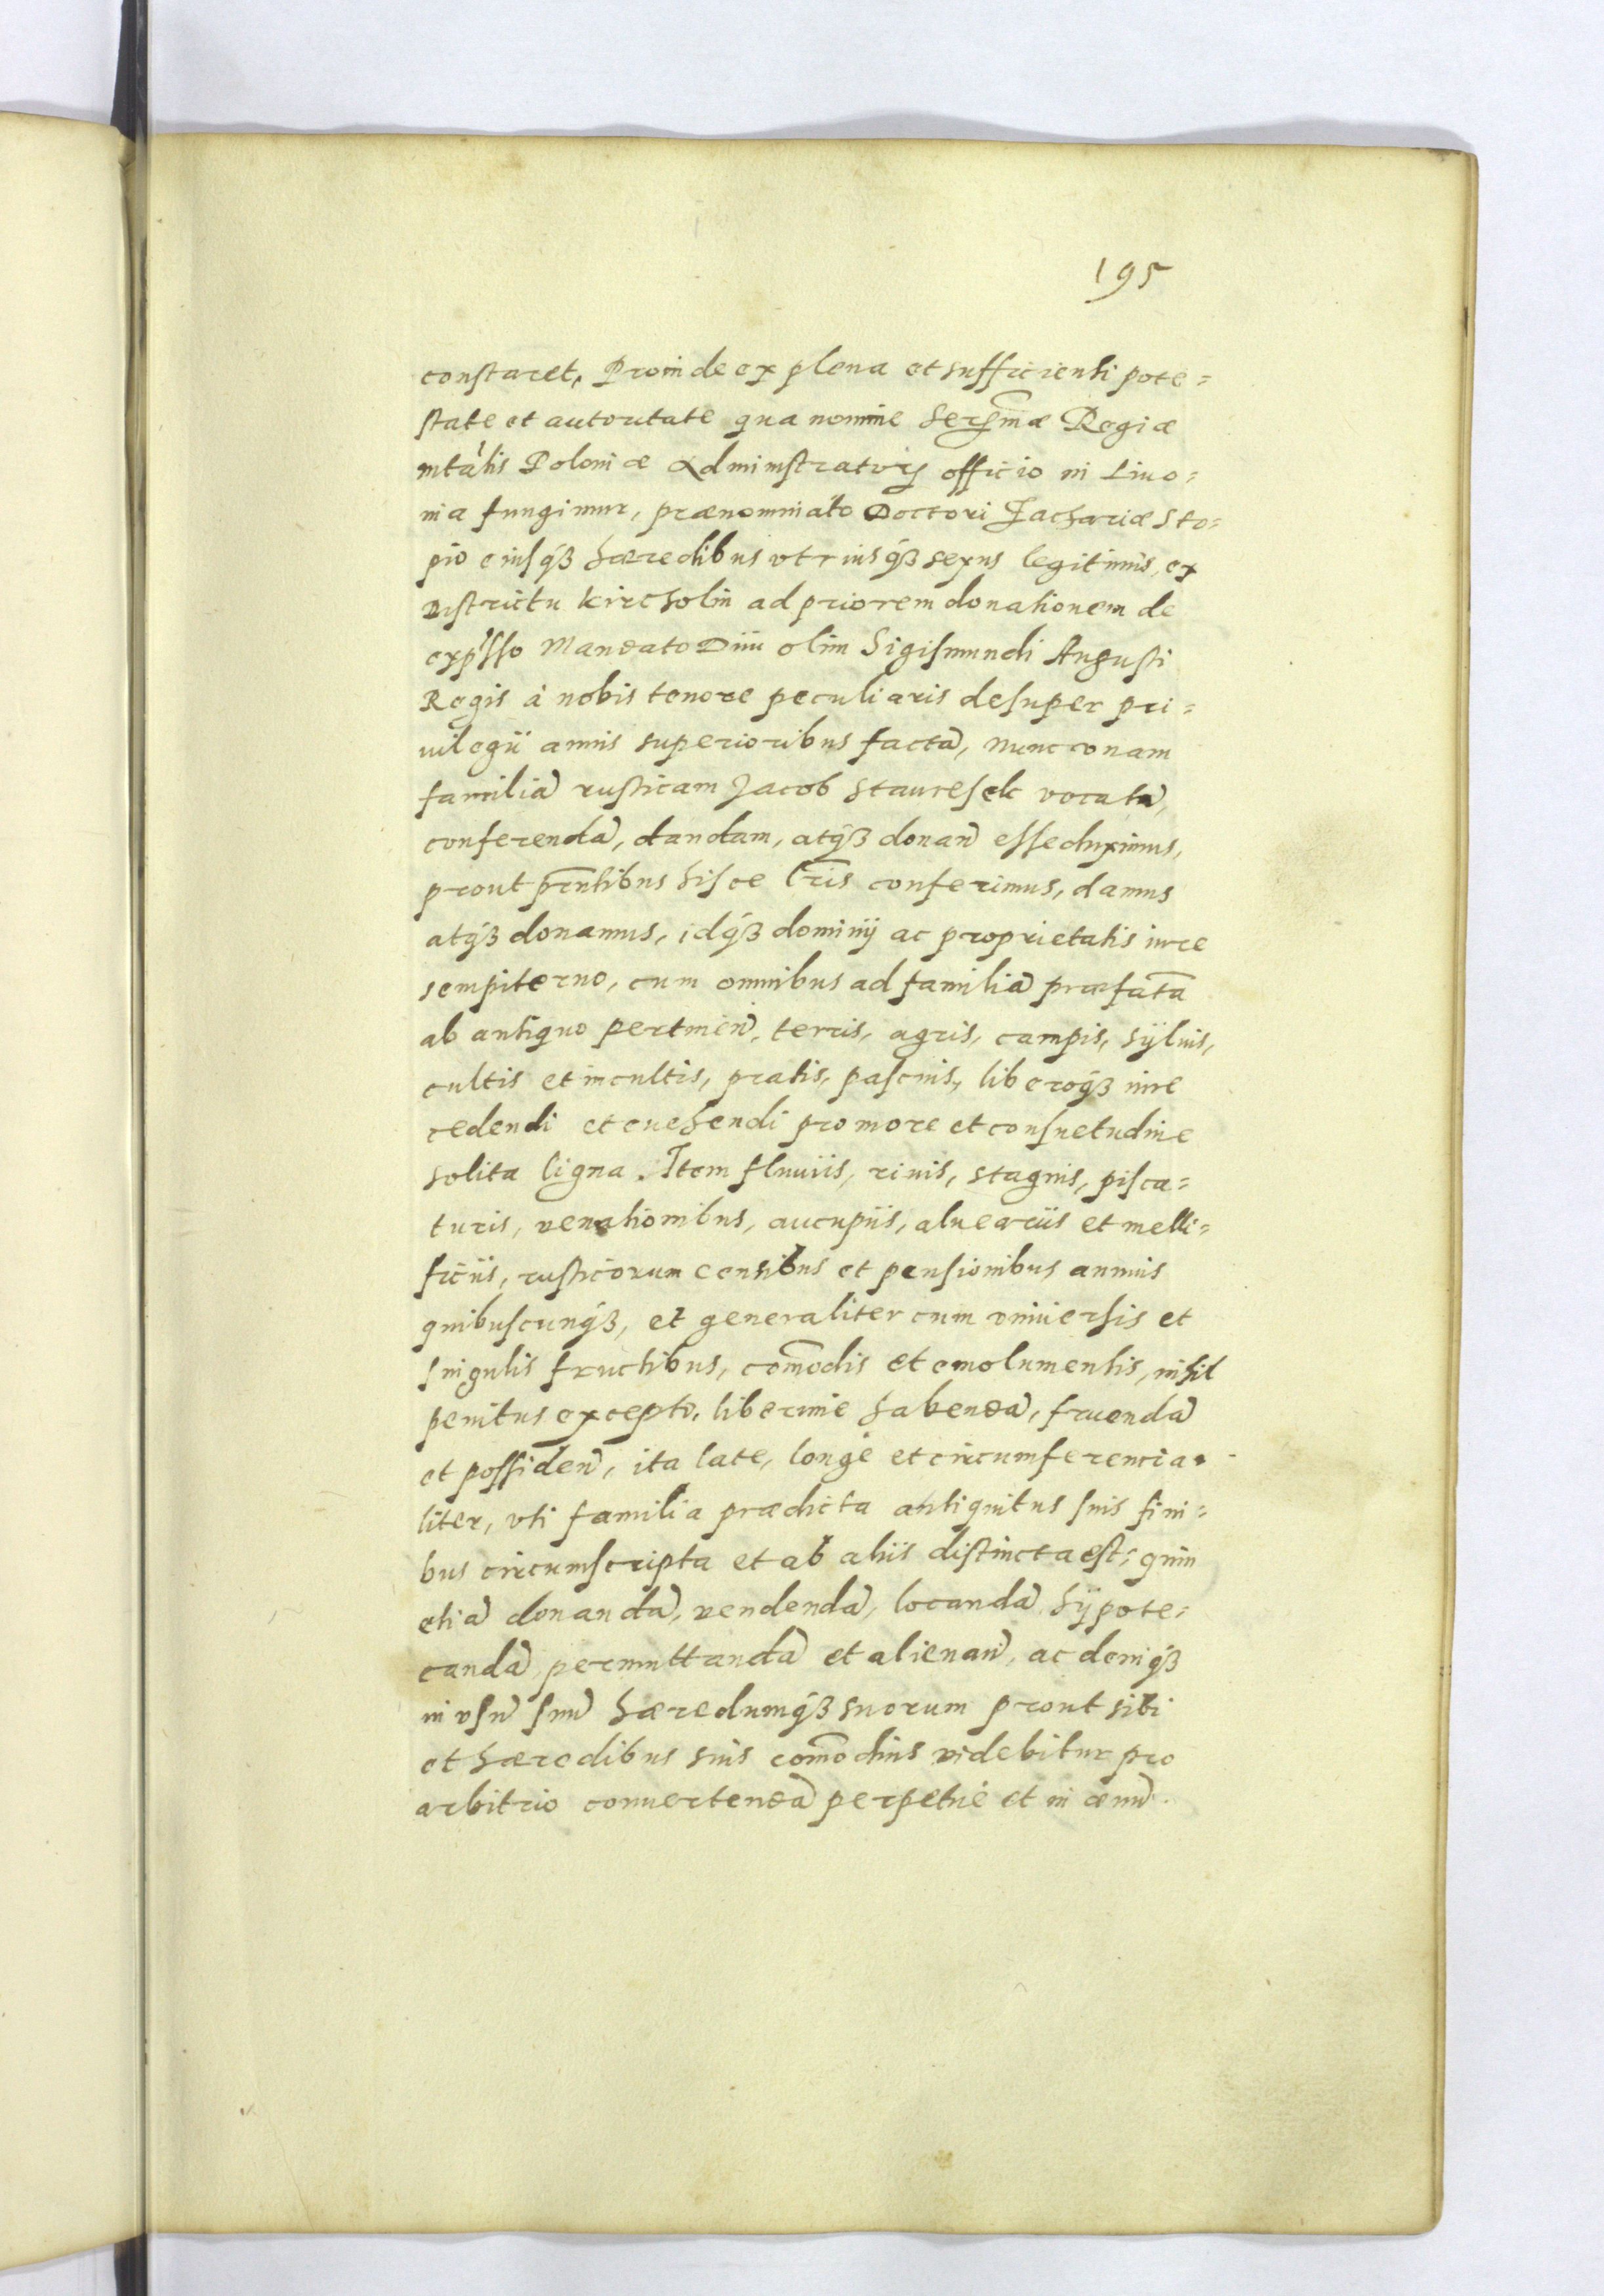 195
constaret, Proinde ex plena et sufficienti pote=
state et autoritate qua nomine Serenmae Regiae
mtatis Poloniae Administratoris officio in Livo=
nia fungimur, praenominato Doctori Zachariae Sto=
pio eiusq3 haeredibus utriusq3 sexus legitimis, ex
Districtu kircholm ad priorem donationem de
exp̃sso Mandato Divi olim Sigismundi Augusti
Regis à nobis tenore peculiaris desuper pri=
vilegii annis superioribus factã, nunc
familiã rusticam Jacob vocatã,
conferendã, dandam, atq3 donañ esse duximus,
prout prñtibus hisce l̃ris conferimus, damus
atq3 donamus, idq3 dominij ac proprietatis iure
sempiterno, cum omnibus ad familiã praefatã
ab antiquo pertineñ, terris, agris, campis, sÿlvis,
cultis et incultis, pratis, pascuis, liberoq3 iure
cedendi et evehendi pro more et consuetudine
solita ligna. Item fluviis, rivis, stagnis, pisca=
turis, venationibus, aucupiis, alveariis et melli=
ficiis, rusticorum censibus et pensionibus annuis
quibuscunq3, et generaliter cum universis et
singulis fructibus, com̃odis et emolumentis, nihil
penitus excepto, liberime habendã, fruendã
et possideñ, ita late, longè et circumferencia=
liter, uti familia praedicta antiquitus suis fini=
bus circumscripta et ab aliis distincta est; quin
etiã donandã, vendendã, locandã hÿpote=
candã, permuttandã et alienañ, ac deniq3
in usũ suũ haeredumq3 suorum prout sibi
et haeredibus suis com̃odius videbitur pro
arbitrio convertendã perpetuè et in aevũ.